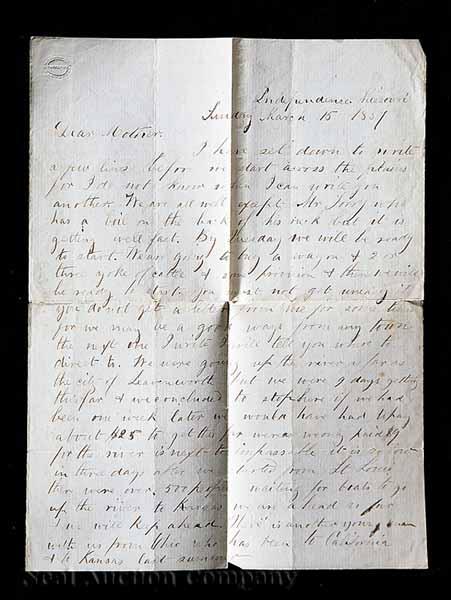 Independence Missouri
Sunday March 15 1857
Dear Mother.
I have set down to write
a few lines before we start across the plains
for I do not know when I can write you
another. We are all well except Mr who
has a boil on the back of his neck but it is
getting well fast. By Tuesday we will be ready
to start. We are going to buy a wagon & 2 or
three yoke of cattle & some provision & then we will
be ready to start. You must not get uneasy if
you do not get a letter from me for some time
for we may be a good ways from any town
the next one I write I will tell you where to
direct to. We were going up the river as far as
the city of Leavenworth but we were 9 days getting
this far & we concluded to stop here if we had
been one week later we would have had to pay
about $25 to get this far were as we only paid $9
for the river is next to impassable it is so low
in three days after we started from St Louis
there were over 500 people waiting for boats to go
up the river to Kansas we are ahead so far
& we will keep ahead. There is another young man
with us from Ohio who has been to California
& to Kansas last summer
Neal Auction Company